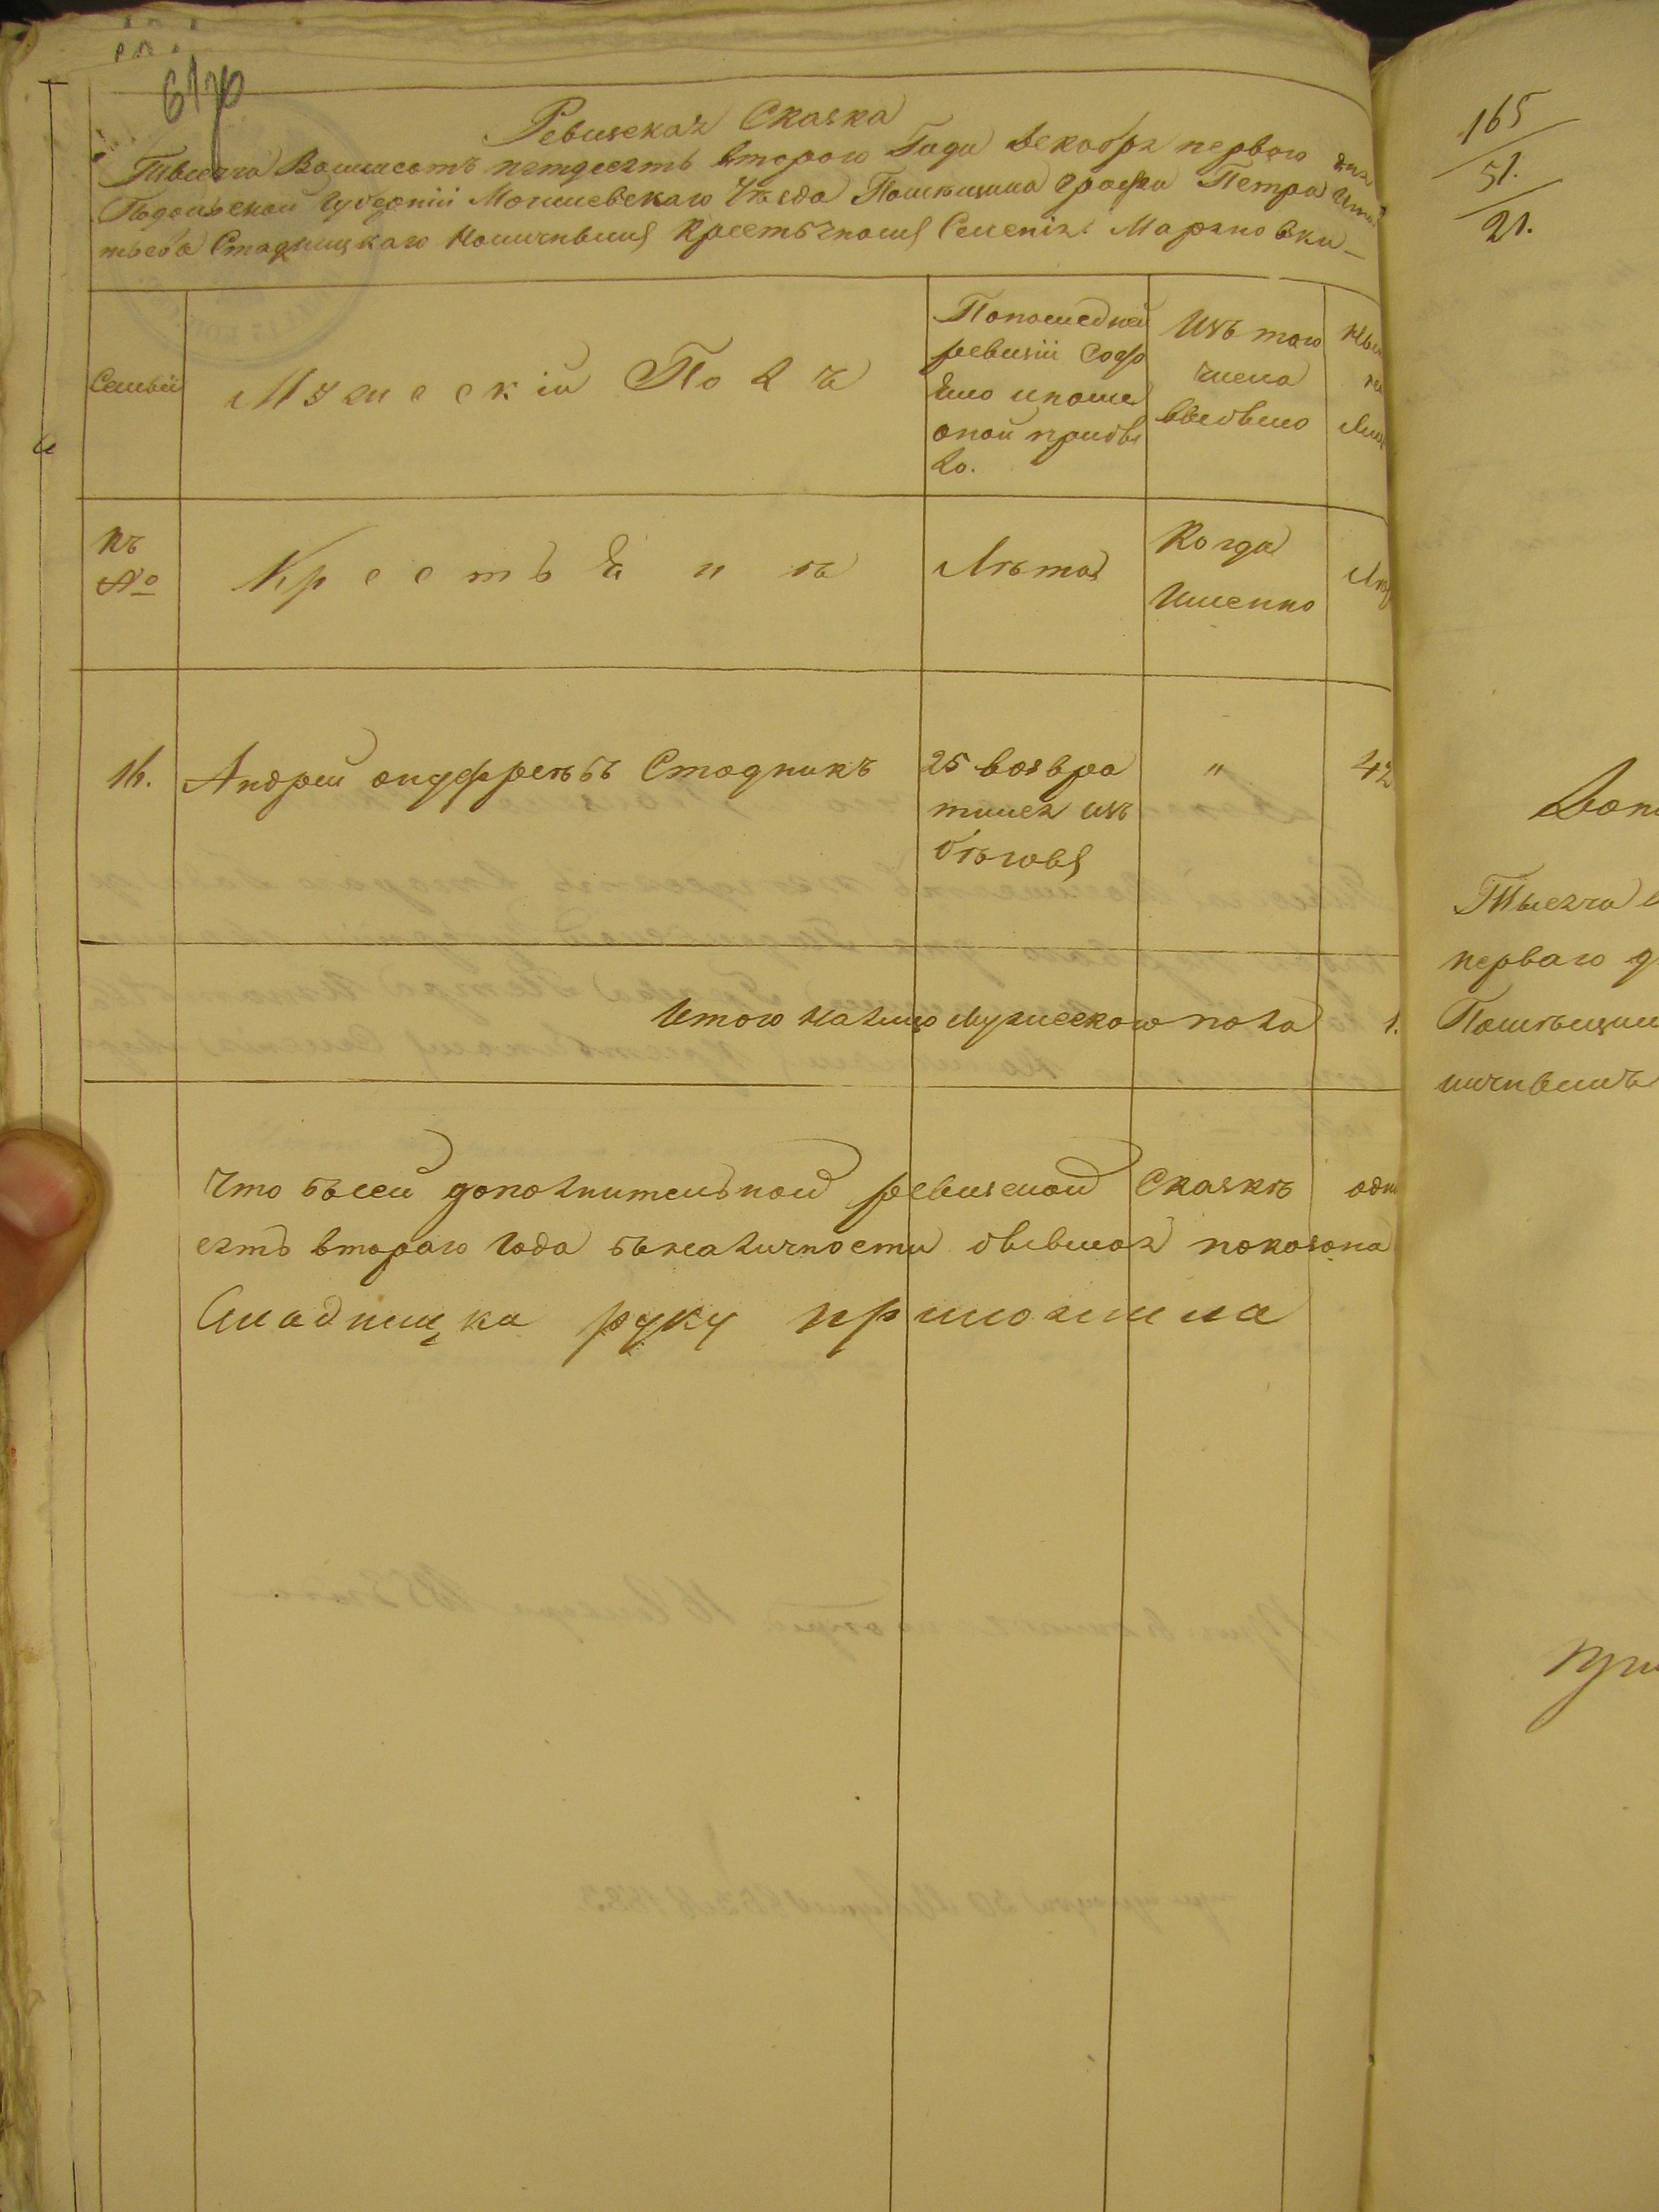 6/70
Ревизская Сказка
Тысяча Восмьсотъ пятдесятъ второго Года Декабря первого дня
Подольской Губернiи Могилевскаго Уѣзда Помѣщика Графа Петра
Стадницкаго Наличнымъ Крестьяномъ Селенiя Маряновки
Семьи
Мужескiй Полъ
Попоследней
ревизiи Состо
яло ипосле
оной прибы
ло.
Изъ того
числа
выбыло
Къ
№
Крестьянъ
Лѣта
Когда
Имянно
16.
Андрей онуффреевъ Стадникъ
25 возвра
тился изъ
бѣговъ
"
42
Итого налицо Мужескаго пола
1.
Что въсей дополнительной ревизской Сказкѣ
сятъ второго Года въналичности бывшая показана
руку приложила
165
51.
21.
Тысяча
перваго